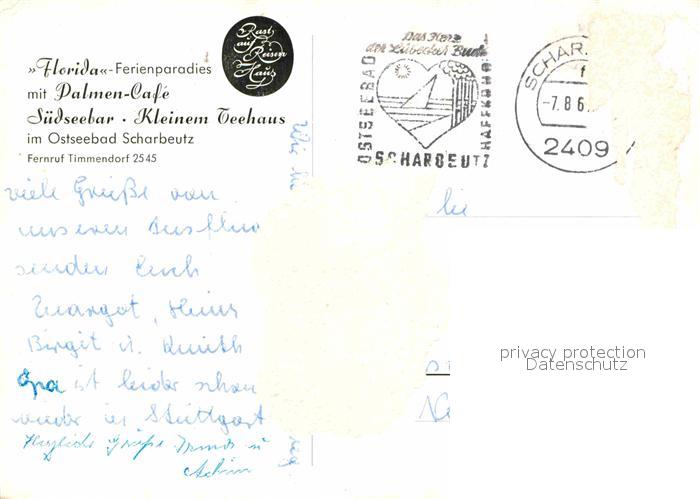 »Florida«-Ferienparadies
mit Palmen-Café
Südseebar · Kleinem Teehaus
im Ostseebad Scharbeutz
Fernruf Timmendorf 2545
Rast auf Reisen Haus
Das Herz
der Lübecker Bucht
OSTSEEBAD
SCHARBEUTZ
HAFFKRUG
SCHAR
-7.8.6
2409
viele Grüße von
unseren Ausflug
senden Euch
Margot, Heinz
Birgit u.
Opa ist leider schon
wieder in Stuttgart
Herzliche Grüße
Achim
privacy protection
Datenschutz